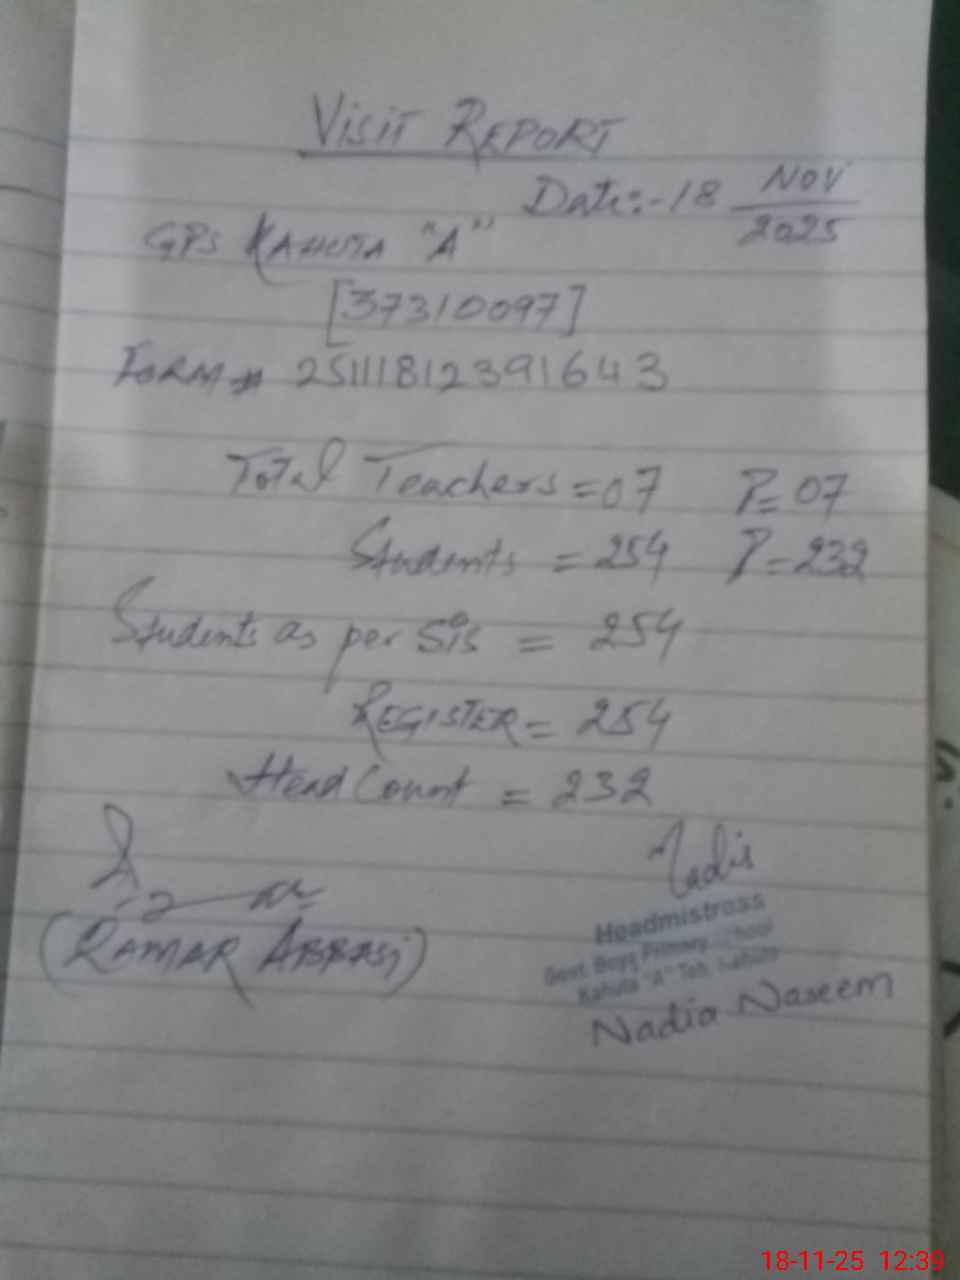 VISIT REPORT
Date:-18 NOV
2025
GPS KAHUTA "A"
[37310097]
FORM # 25111812391643
Total Teachers = 07 P= 07
Students = 254 P=232
Students as per SIS = 254
REGISTER = 254
Head Count = 232
Nadia
(QAMAR ABBASI)
Headmistress
Govt. Boys Primary School
Kahuta "A" Teh. Kahuta
Nadia Naseem
18-11-25 12:39